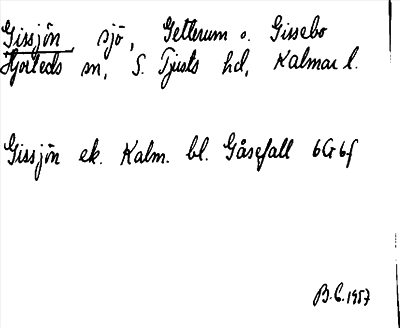 Gissjön sjö, Getterum o. Gissebo
Hjorteds sn, S. Tjusts hd, Kalmar l.
Gissjön ek. Kalm. bl. Gåsefall 6G6f
B.C. 1957